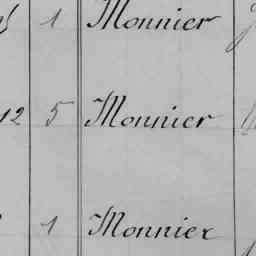 1 Monnier
12 5 Monnier
1 Monnier